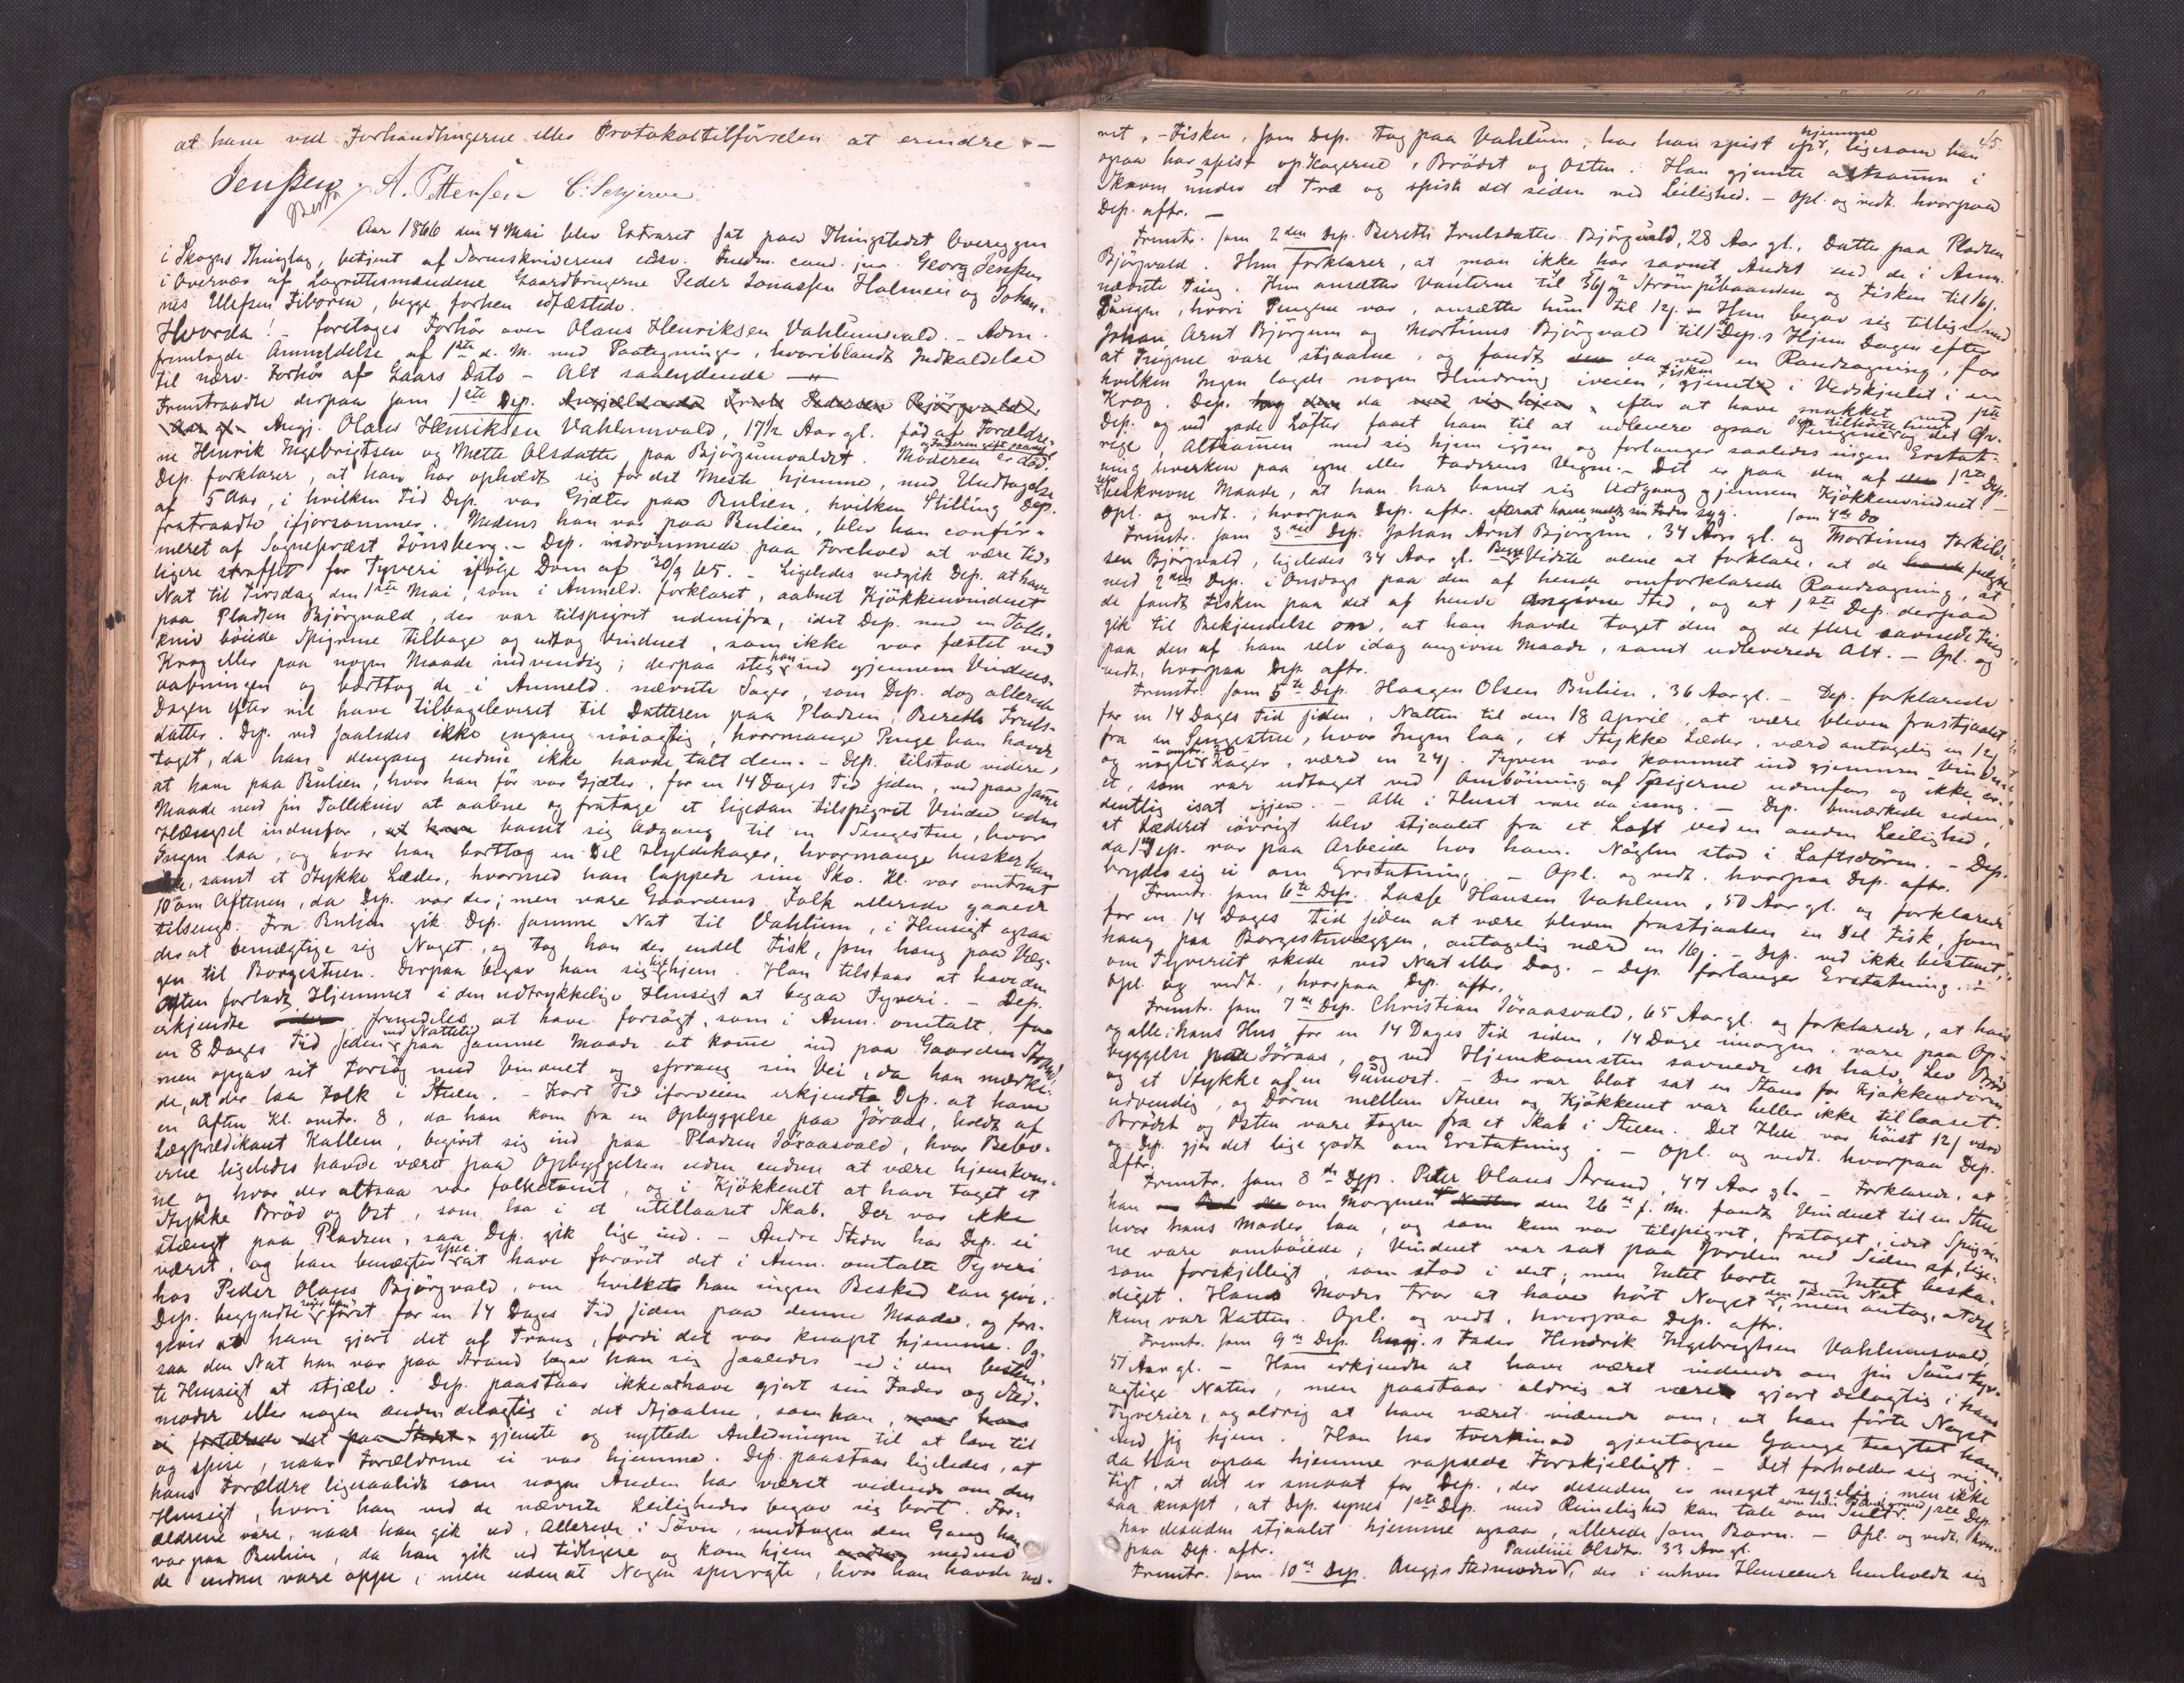 at have ved Forhandlingerne eller Protokoltilførselen at erindre. —
Jenssen A. Pettersen C. Schjerve
Aar 1866 den 4 Mai blev Extraret sat paa Thingstedet Overeggen
i Skogns Thinglag, betjent af Sorenskriverens edsv. Fuldm. cand. jur. Georg Jenssen
i Overvær af Lagrettesmændene Gaardbrugerne Peder Jonassen Holmen og Johan-
nes Ellefsen Fiboren, begge forhen edfæstede.
Hvorda! — foretoges Forhør over Olaus Henriksen Vahlumvald. — Adm.
fremlagde Anmeldelse af 1ste d. M. med Paategninger, hvoriblandt Indkaldelse
til nærv. Forhør af Gaars Dato — Alt saalydende —
Fremtraadte derpaa som 1ste Dep. Angjældende Truls Pedersen Bjørgvald
Aar gl. Angj. Olaus Henriksen Vahlumvald, 17½ Aar gl. fød af Forældre-
ne Henrik Ingebrigtsen og Mette Olsdatter paa Bjørgumvaldet. Moderen er død og Faderen gift paany.
Dep. forklarer, at han har opholdt sig for det Meste hjemme, med Undtagelse
af 5 Aar, i hvilken Tid Dep. var Gjæter paa Bulien, hvilken Stilling Dep.
fratraadte ifjorsommer. Medens han var paa Bulien, blev han confir-
meret af Sognepræst Lønsberg. — Dep. indrømmede paa Forehold at være tid-
ligere straffet for Tyveri ifølge Dom af 20/9 65. — Ligeledes vedgik Dep. at have
Nat til Tirsdag den 1ste Mai, som i Anmeld. forklaret, aabnet Kjøkkenvinduet
paa Pladsen Bjørgvald, der var tilspigret udenifra, idet Dep. med en Tolle-
kniv bøiede Spigrene tilbage og udtog Vinduet, som ikke var fæstet ved
Krog eller paa nogen Maade indvendig; derpaa steg han ind gjennem Vindues-
aabningen og borttog de i Anmeld. nævnte Sager, som Dep. dog allerede
Dagen efter vil have tilbageleveret til Datteren paa Pladsen, Bereth Truls-
datter. Dep. ved saaledes ikke engang nøiagtig, hvormange Penge han havde
taget, da han dengang endnu ikke havde talt dem. — Dep. tilstod videre,
at han paa Bulien, hvor han før var Gjæter, for en 14 Dages Tid siden, ved paa samme
Maade med sin Tollekniv at aabne og fratage et ligedan tilspigret Vindue uden
Hængsel indenfor, at have banet sig Adgang til en Sengestue, hvor
Ingen laa, og hvor han borttog en Del Hveldekager, hvormange husker han
ikke, samt et Stykke Læder, hvormed han lappede sine Sko. Kl. var omtrent
10 om Aftenen, da Dep. var der; men vare Gaardens Folk allerede gaaede
tilsengs. Fra Bulien gik Dep. samme Nat til Vahlum, i Hensigt ogsaa
der at bemægtige sig Noget, og tog han der endel Fisk, som hang paa Væg-
gen til Borgestuen. Derpaa begav han sig hjem. Han tilstaar at have den
Aften forladt Hjemmet i den udtrykkelige Hensigt at begaa Tyveri. — Dep.
erkjendte fremdeles at have forsøgt, som i Anm. omtalt, for
en 8 Dages Tid siden ved Nattetid paa samme Maade at komme ind paa Gaarden Strand,
men opgav sit Forsøg med Vinduet og sprang sin Vei, da han mærke-
de, at der laa Folk i Stuen. — Kort Tid iforveien erkjendte Dep. at have
en Aften Kl. omtr. 8, da han kom fra en Opbyggelse paa Jøraas, holdt af
Lægprædikant Kallem, begivet sig ind paa Pladsen Jøraasvald, hvor Bebo-
erne ligeledes havde været paa Opbyggelsen uden endnu at være hjemkom-
ne og hvor der altsaa var folketomt, og i Kjøkkenet at have taget et
Stykke Brød og Ost, som laa i et utillaaset Skab. Der var ikke
stængt paa Pladsen, saa Dep. gik lige ind. — Andre Steder har Dep. ei
været, og han benægter at have forøvet det i Anm. omtalte Tyveri
hos Peder Olaus Bjørgvald, om hvilket han ingen Besked kan give.
Dep. begyndte siger han først for en 14 Dages Tid siden paa denne Maade, og for-
giver at have gjort det af Trang, fordi det var knapt hjemme. Og-
saa den Nat han var paa Strand begav han sig saaledes ud i den bestem-
te Hensigt at stjæle. Dep. paastaar ikke at have gjort sin Fader og Sted-
moder eller nogen anden delagtig i det Stjaalne, som han, naar han
ei fortærede det paa Stedet, gjemte og nyttede Anledningen til at lave til
og spise, naar Forældrene ei var hjemme. Dep. paastaar ligeledes, at
hans Forældre ligesaalidt som nogen Anden har været vidende om den
Hensigt, hvori han ved de nævnte Leiligheder begav sig bort. For-
ældrene vare, naar han gik ud, allerede i Søvn, undtagen den Gang han
var paa Bulien, da han gik ud tidligere og kom hjem medens
de endnu vare oppe, men uden at Nogen spurgte, hvor han havde væ-
45
ret. — Fisken, som Dep. tog paa Vahlum, har han spist op hjemme, ligesom han
ogsaa har spist op Kagerne, Brødet og Osten. Han gjemte altsammen i
Skoven under et Træ og spiste det siden ved Leilighed. — Opl. og vedt. hvorpaa
Dep. aftr. —
Fremtr. som 2den Dep. Bereth Trulsdatter Bjørgvald, 28 Aar gl., Datter paa Pladsen
Bjørgvald. Hun forklarer, at man ikke har savnet Andet end de i Anm.
nævnte Ting. Hun ansætter Vanterne til 36 s, Strømpebaandene og Fisken til 16 s.
Pungen, hvori Pengene var, ansætter hun til 12 s. — Hun begav sig tilligemed
Johan Arnt Bjørgum og Mortinus Bjørgvald til Dep.s Hjem Dagen efter
at Tingene vare stjaalne, og fandt da ved en Randsagning, for
hvilken Ingen lagde nogen Hindring iveien, Fisken gjemt i Vedskjulet i en
Krog. Dep. tog den da med sig hjem, efter at have snakket med 1ste
Dep. og ved gode Løfter faaet ham til at udlevere ogsaa Pengene og det Øv-
rige, Altsammen med sig hjem igjen og forlanger saaledes ingen Erstat-
ning hverken paa egne eller Faderens Vegne. — Det er paa den af 1ste Dep.
beskrevne Maade, at han har banet sig Adgang gjennem Kjøkkenvinduet —
Opl. og vedt., hvorpaa Dep. aftr. efterat have meldt sin Fader syg.
Fremtr. som 3die Dep. Johan Arnt Bjørgum, 34 Aar gl. og som 4de Do Mortinus Torkild-
sen Bjørgvald, ligeledes 34 Aar gl. Begge Vidste alene at forklare, at de havde fulgte
med 2den Dep. i Onsdags paa den af hende omforklarede Randsagning, at
de fandt Fisken paa det af hende angivne Sted, og at 1ste Dep. derpaa
gik til Bekjendelse om, at han havde taget den og de flere savnede Ting
paa den af ham selv idag angivne Maade, samt udleverede Alt. — Opl. og
vedt. hvorpaa Dep. aftr.
Fremtr. som 5te Dep. Haagen Olsen Bulien, 36 Aar gl. — Dep. forklarede
for en 14 Dages Tid siden, Natten til den 18 April, at være bleven frastjaalet
fra en Sengestue, hvor Ingen laa, et Stykke Læder, værd antagelig en 12 s
og nogle Kager, værd en 24 s. Tyven var kommet ind gjennem Vindu-
et, som var udtaget ved Ombøining af Spigerne udenfor og ikke or-
dentlig isat igjen. — Alle i Huset vare da iseng. — Dep. bemærkede siden,
at Læderet iøvrigt blev stjaalet fra et Loft ved en anden Leilighed,
da 1ste Dep. var paa Arbeide hos ham. Nøglen stod i Loftsdøren. — Dep.
bryder sig ei om Erstatning. — Opl. og vedt. hvorpaa Dep. aftr.
Fremtr. som 6te Dep. Lasse Hansen Vahlum, 50 Aar gl. og forklarede
for en 14 Dages Tid siden at være bleven frastjaalen en Del Fisk, som
hang paa Borgestuvæggen, antagelig værd en 16 s. — Dep. ved ikke bestemt,
om Tyveriet skede ved Nat eller Dag. — Dep. forlanger Erstatning. —
Opl. og vedt., hvorpaa Dep. aftr.
Fremtr. som 7de Dep. Christian Jøraasvald, 65 Aar gl. og forklarede, at han
og alle i hans Hus for en 14 Dages Tid siden, 14 Dage imorgen, vare paa Op-
byggelse paa Jøraas, og ved Hjemkomsten savnede en halv Lev Brød
og et Stykke af en Gumost. — Der var blot sat en Staur for Kjøkkendøren
udvendig, og Døren mellem Stuen og Kjøkkenet var heller ikke tillaaset.
Brødet og Osten vare tagne fra et Skab i Stuen. Det Hele var høist 12 s værd
og Dep. gjør det lige godt om Erstatning. — Opl. og vedt. hvorpaa Dep.
aftr.
Fremtr. som 8de Dep. Peder Olaus Strand, 47 Aar gl. — Forklarede, at
han om Morgenen den 26de f. M. fandt Vinduet til en Stue
hvor hans Moder laa, og som kun var tilspigret, frataget, idet Spigre-
ne vare ombøiede; Vinduet var sat paa Jorden ved Siden af, lige-
som forskjelligt, som stod i det; men Intet borte og Intet beska-
diget. Hans Moder tror at have hørt Noget den samme Nat, men antog, at det
kun var Katten. Opl. og vedt., hvorpaa Dep. aftr.
Fremtr. som 9de Dep. Angj.s Fader Hendrik Ingebrigtsen Vahlumsvald,
51 Aar gl. — Han erkjendte at have været vidende om sin Søns tyv-
agtige Natur, men paastaar aldrig at være gjort delagtig i hans
Tyverier, og aldrig at have været vidende om, at han førte Noget
med sig hjem. Han har tvertimod gjentagne Gange tugtet ham,
da han ogsaa hjemme rapsede Forskjelligt. — Det forholder sig rig-
tigt, at det er smaat for Dep., der desuden er meget sygelig; men ikke
saa knapt, at Dep. synes 1ste Dep. med Rimelighed kan tale om Sult som sin Bevæggrund. 1ste Dep.
har desuden stjaalet hjemme ogsaa, allerede som Barn. — Opl. og vedt. hvor-
paa Dep. aftr.
Pauline Olsdtr. 33 Aar gl.
Fremtr. som 10de Dep. Angj.s Stedmoder, der i enhver Henseende henholdt sig